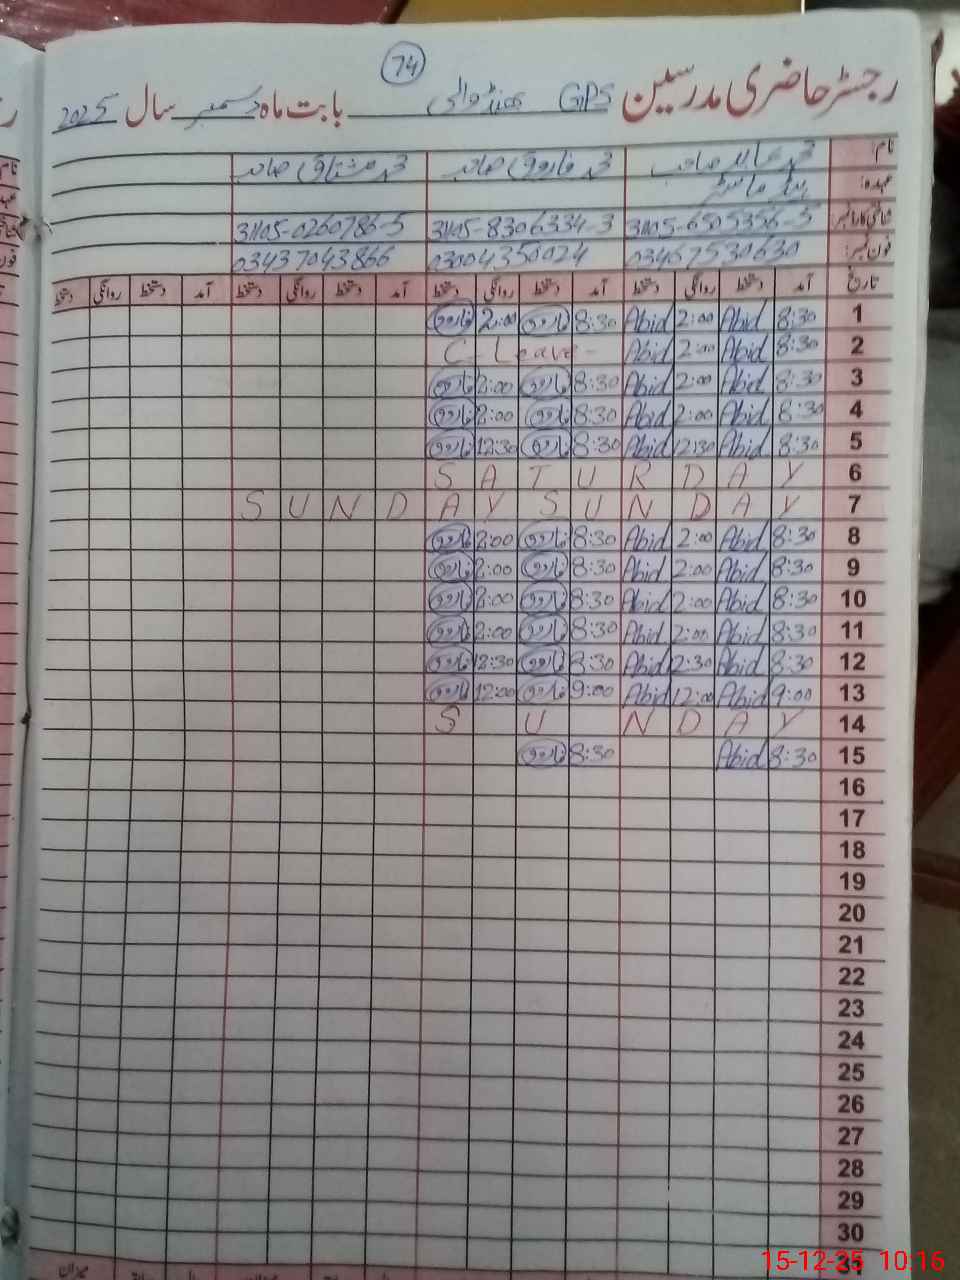 74
رجسٹر حاضری مدرسین GPS بھنڈوالی بابت ماہ دسمبر سال 2025
نام: محمد عابد صاحب محمد فاروق صاحب محمد مشتاق صاحب
عہدہ: ہیڈ ماسٹر
شناختی کارڈ نمبر 31105-6505356-5 31105-8306334-3 31105-0260786-5
فون نمبر: 03467530630 03004350024 03437043866
تاریخ آمد دستخط روانگی دستخط آمد دستخط روانگی دستخط آمد دستخط روانگی دستخط آمد دستخط روانگی دستخط
1 8:30 Abid 2:00 Abid 8:30 فاروق 2:00 فاروق
2 8:30 Abid 2:00 Abid C- Leave-
3 8:30 Abid 2:00 Abid 8:30 فاروق 2:00 فاروق
4 8:30 Abid 2:00 Abid 8:30 فاروق 2:00 فاروق
5 8:30 Abid 12:30 Abid 8:30 فاروق 12:30 فاروق
6 S A T U R D A Y
7 S U N D A Y S U N D A Y
8 8:30 Abid 2:00 Abid 8:30 فاروق 2:00 فاروق
9 8:30 Abid 2:00 Abid 8:30 فاروق 2:00 فاروق
10 8:30 Abid 2:00 Abid 8:30 فاروق 2:00 فاروق
11 8:30 Abid 2:00 Abid 8:30 فاروق 2:00 فاروق
12 8:30 Abid 12:30 Abid 8:30 فاروق 12:30 فاروق
13 9:00 Abid 12:00 Abid 9:00 فاروق 12:00 فاروق
14 S U N D A Y
15 8:30 Abid 8:30 فاروق
16
17
18
19
20
21
22
23
24
25
26
27
28
29
30
31
میزان
15-12-25 10:16